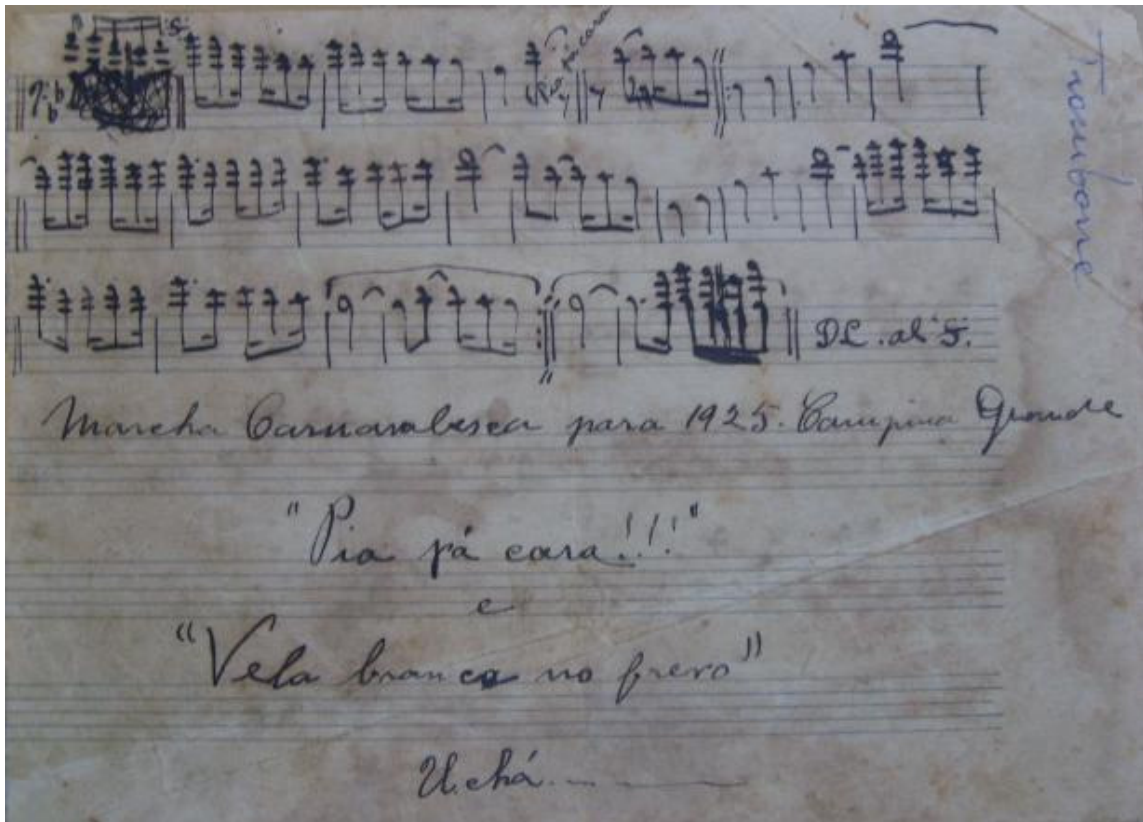 Trombone
Pia pá cara
D.C. al S.
Marcha Carnavalesca para 1925. Campina Grande
"Pia pá cara!!!"
e
"Vela branca no frevo"
Uchá.